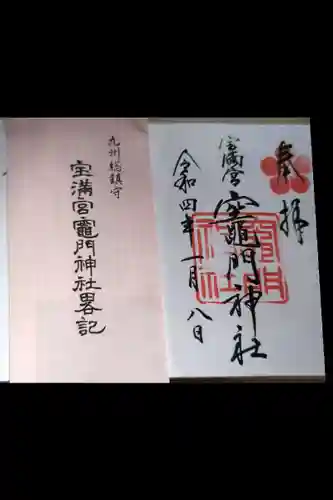 九州総鎮守
宝満宮竈門神社畧記
奉拝
宝満宮
竈門神社
令和四年一月八日